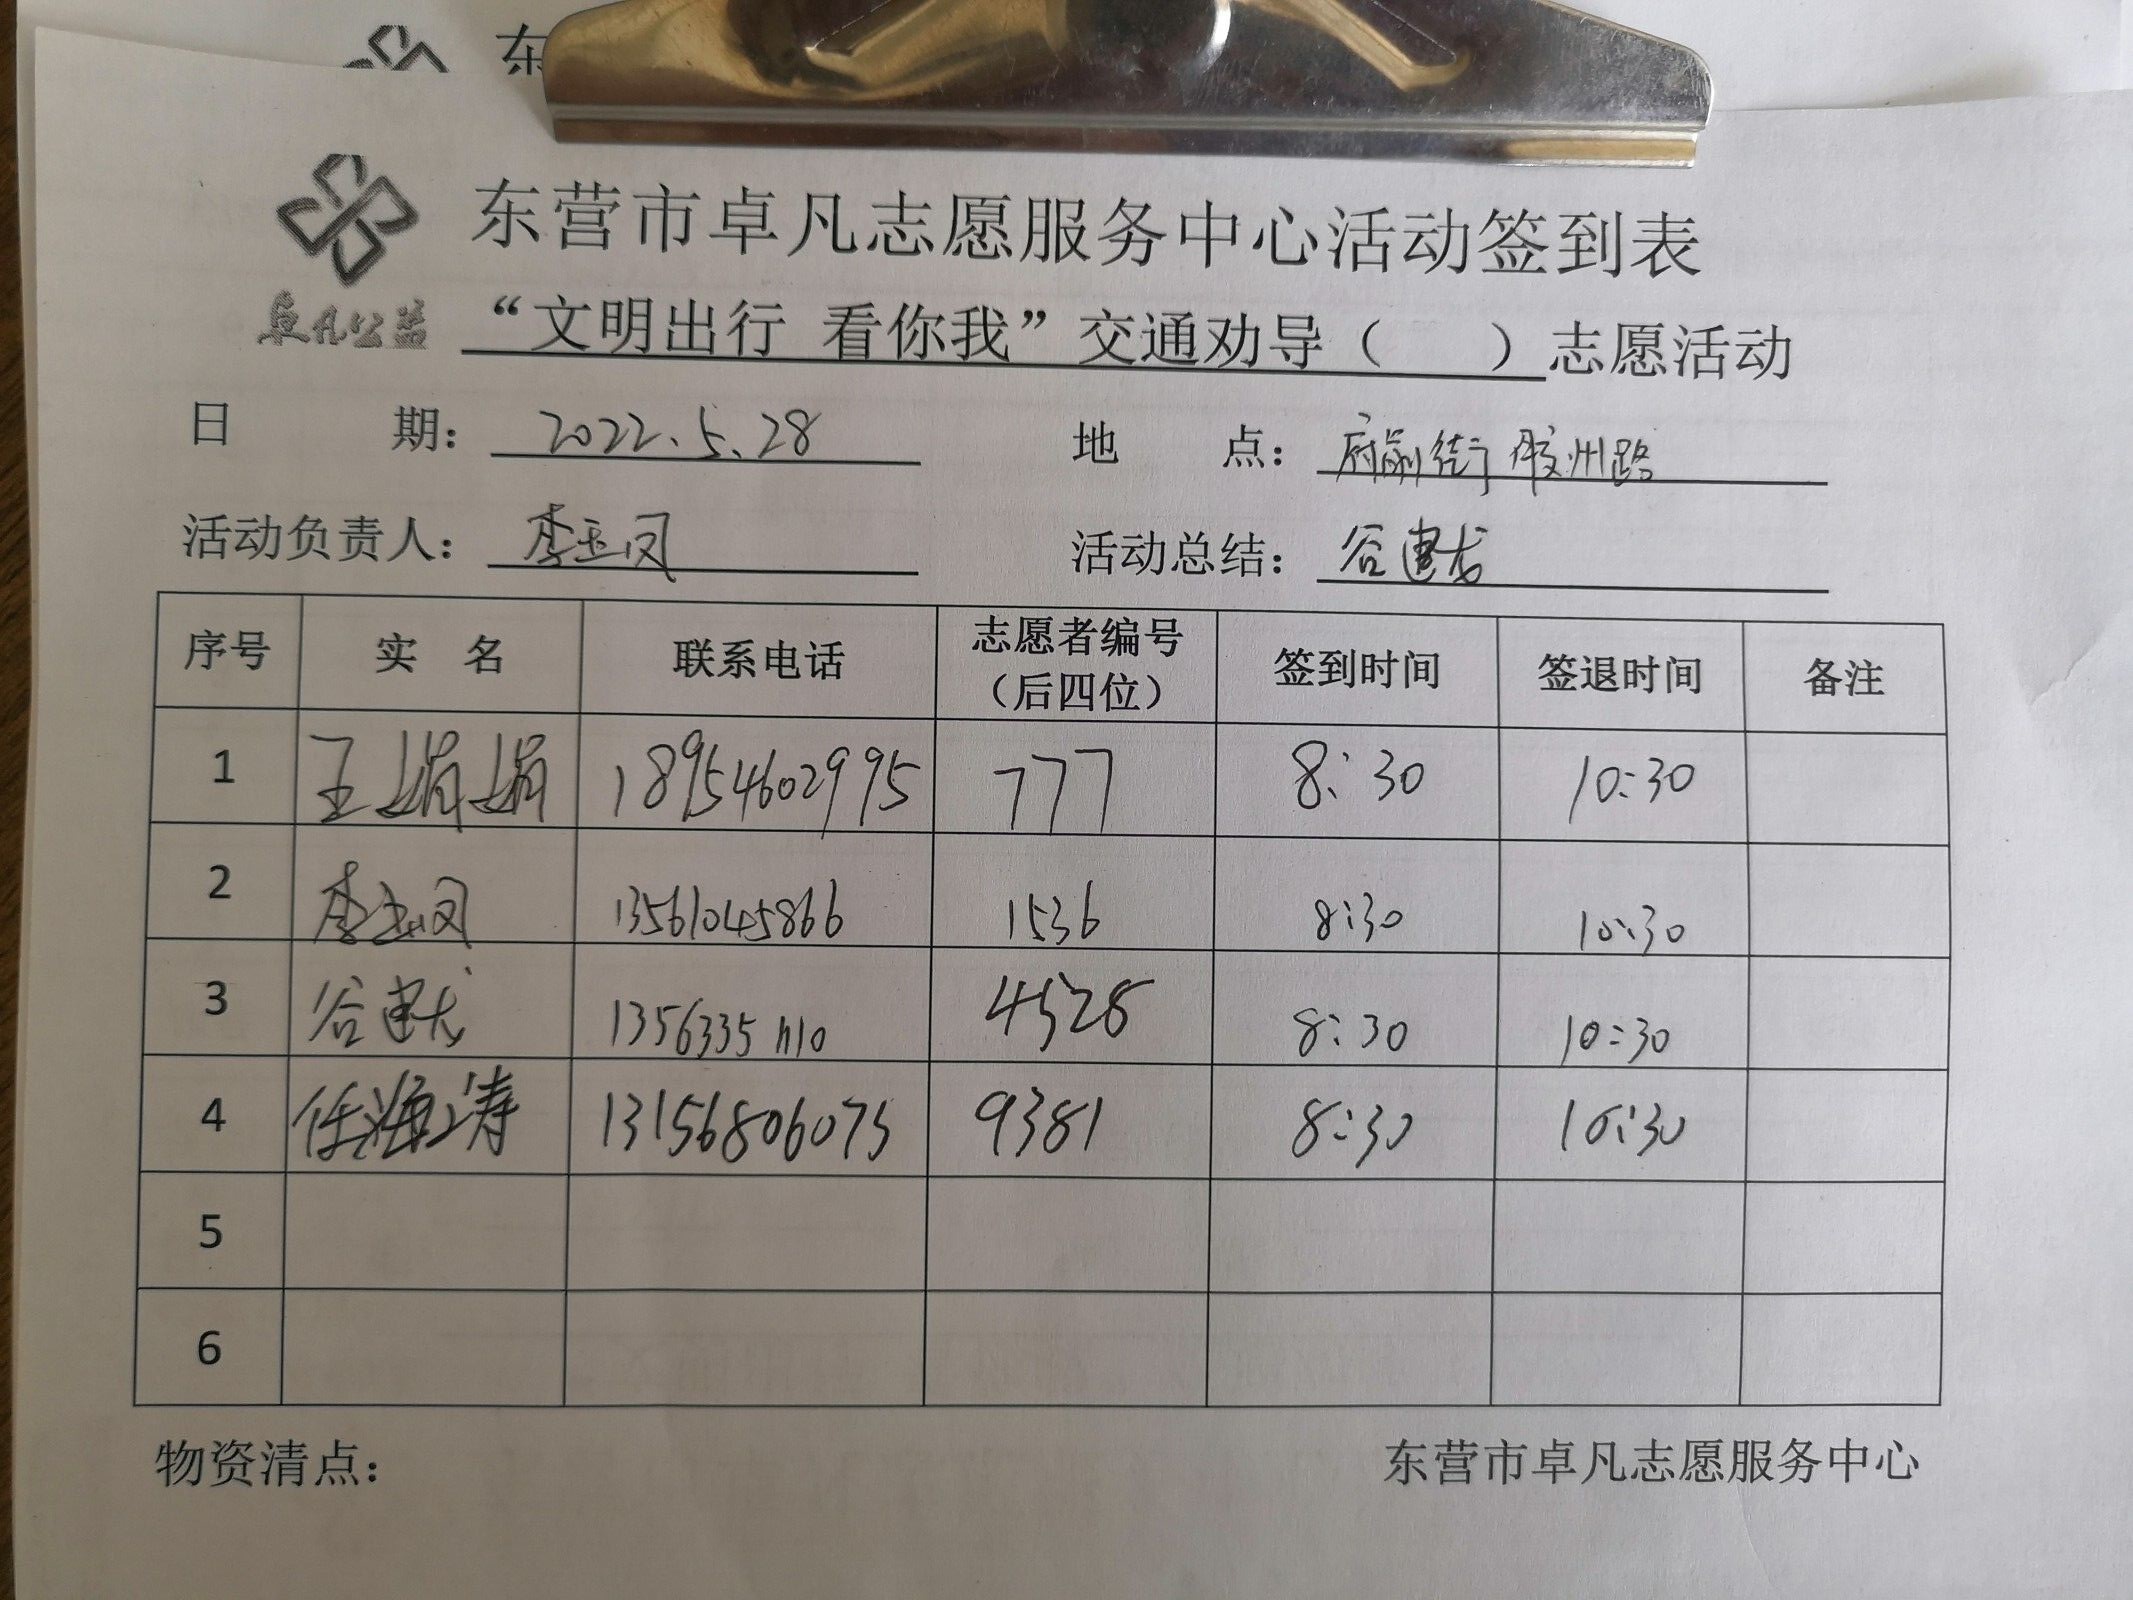 东
东营市卓凡志愿服务中心活动签到表
卓凡公益
“文明出行 看你我”交通劝导（ ）志愿活动
日 期： 2022.5.28 地 点： 府前街胶州路
活动负责人： 李玉凤 活动总结： 谷建龙
序号 实 名 联系电话 志愿者编号（后四位） 签到时间 签退时间 备注
1 王娟娟 18954602995 777 8:30 10:30
2 李玉凤 13561045866 1536 8:30 10:30
3 谷建龙 13563351110 4528 8:30 10:30
4 任海涛 13156806075 9381 8:30 10:30
5
6
物资清点： 东营市卓凡志愿服务中心